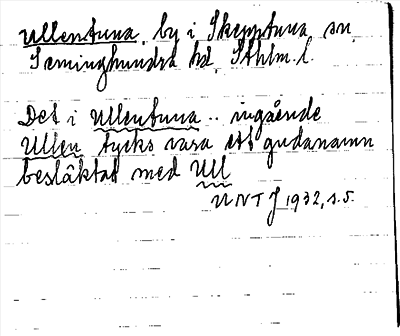 Ullentuna, by i Skepptuna sn
Seminghundra hd, Sthlm. l.
Det i Ullentuna .. ingående
Ullen tycks vara ett gudanamn
besläktat med Ull
UNTJ 1932, s. 5.